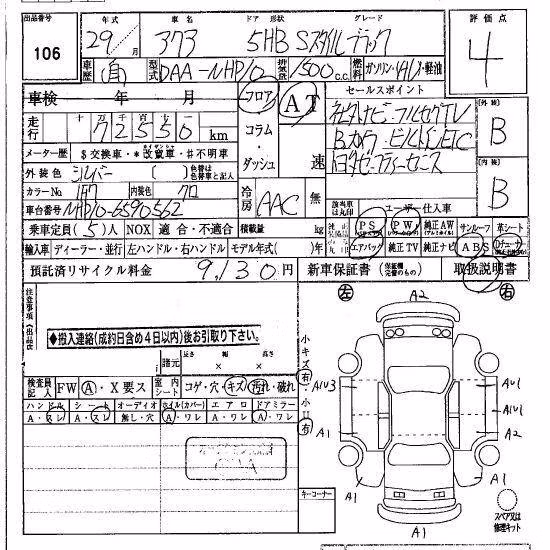 出品番号 年式 車名 ドア 形状 グレード 評価点
106 29/月 アクア 5HB Sスタイルブラック 4
車歴 自 型式 DAA-NHP10 排気量 1500 c.c. 燃料 ガソリン・HV・軽油
車検 年 月 フロア AT セールスポイント
走行 十万 万 千 百 十 72550 km コラム・ダッシュ 速
社外ナビ・フルセグTV
Bカメラ・ビルトインETC
トヨタセーフティーセンス
外装 B
内装 B
メーター歴 $交換車・*改竄車・#不明車
外装色 シルバー ( ) 色替は色替車と記入
カラーNo 1F7 内装色 クロ
車台番号 NHP10-6590562
冷房 AAC 無
該当車は丸印 ユーザー仕入車
乗車定員(5)人 NOX 適合・不適合 積載量 kg
純正装備品 PS PW 純正AW(アルミホイル) サンルーフ 革シート
輸入車 ディーラー・並行 左ハンドル・右ハンドル モデル年式( )年
エアバッグ 純正TV 純正ナビ ABS Dチューナー
預託済リサイクル料金 9,130円 新車保証書(保証欄完備のもの) 取扱説明書
注意事項(出品店)
左 A2 右
◆搬入連絡(成約日含め4日以内)後お引取り下さい。
諸元 長さ 幅 高さ × ×
小キズ 右 A1U3
小凹 右 A1
AU1
A1U1
A2
検査員記入 FW A・X要ス 室内シート コゲ・穴・キズ・汚れ・破れ
ハンドル シート オーディオ ホイル(カバー) エアロ ドアミラー
A・スレ A・スレ 無し・穴 A・ワレ A・ワレ A・ワレ
A1 A1
キーコーナー
スペア又は修理キット
A1